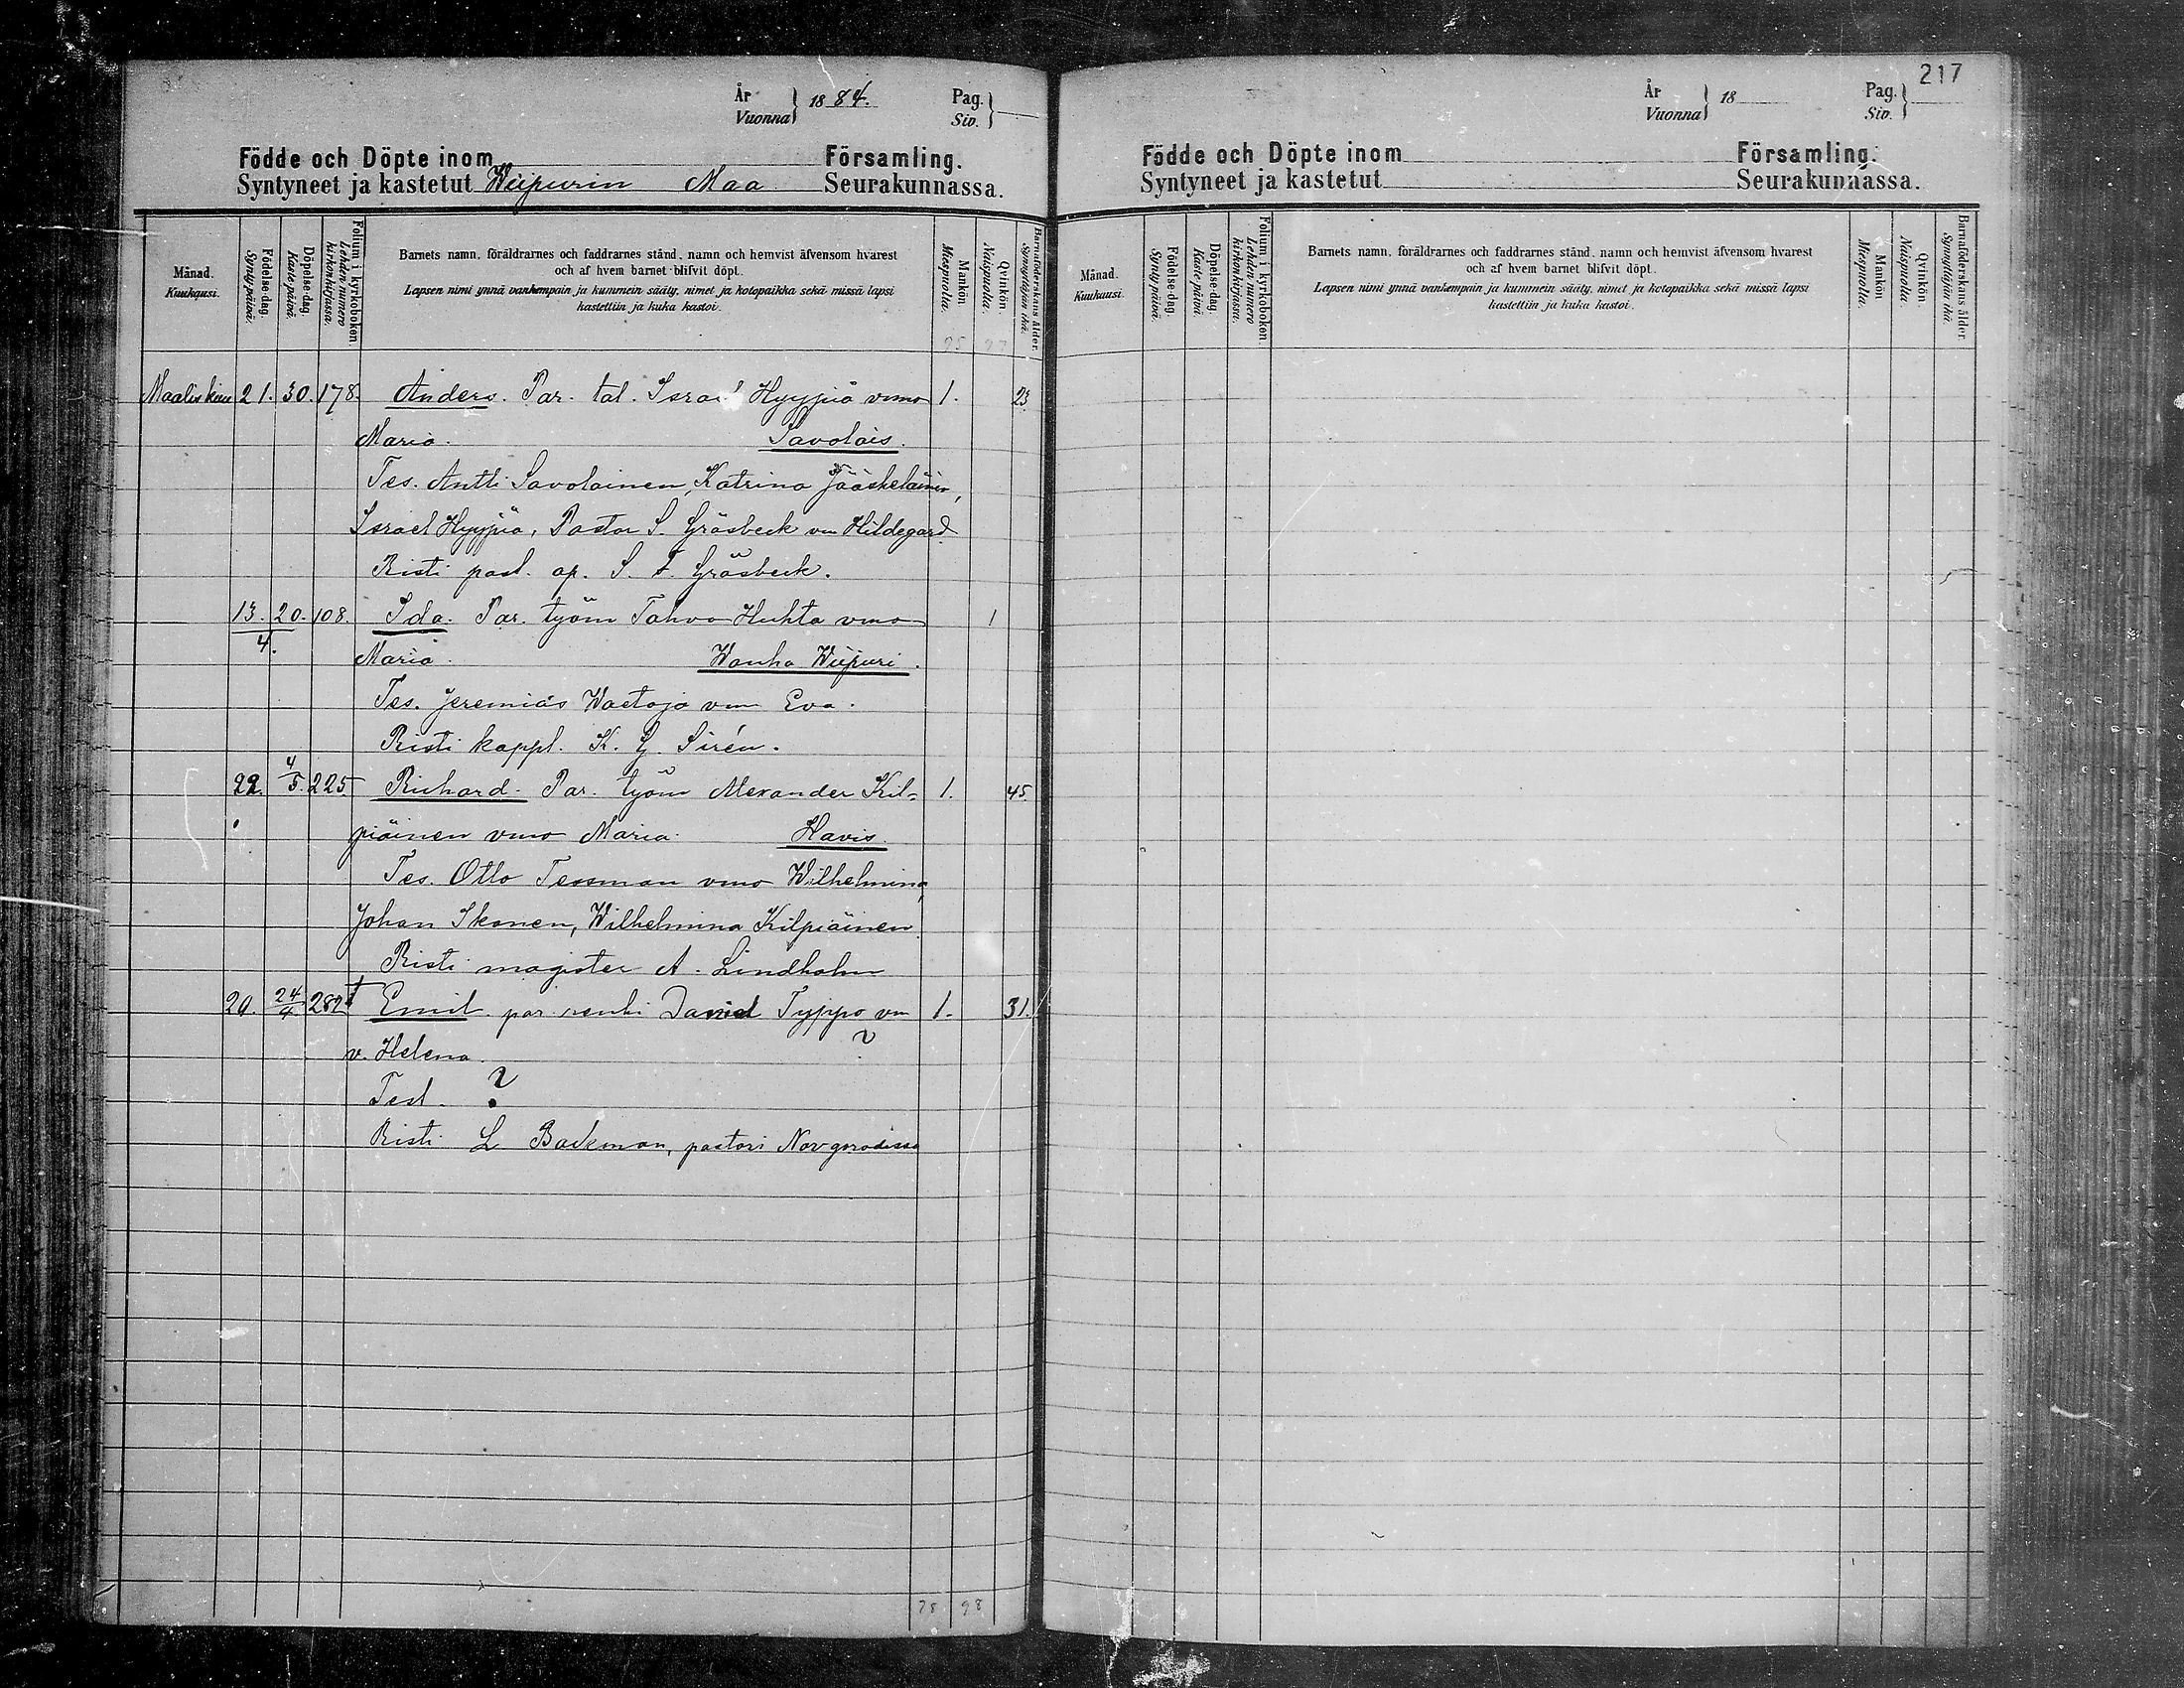 År
Vuonna } 1884.
Pag.
Siv. }
Födde och Döpte inom Församling.
Syntyneet ja kastetut Wiipurin Maa Seurakunnassa.
Månad.
Kuukausi.
Födelse-dag.
Syntypäivä.
Döpelse-dag.
Kastepäivä.
Folium i kyrkoboken.
Lehden numero kirkonkirjassa.
Barnets namn, föräldrarnes och faddrarnes stånd, namn och hemvist äfvensom hvarest
och af hvem barnet blifvit döpt.
Lapsen nimi ynnä vanhempain ja kummein sääty, nimet ja kotopaikka sekä missä lapsi
kastettiin ja kuka kastoi.
Mankön.
Miespuolta.
Qvinkön.
Naispuolta.
Barnaföderskans ålder.
Synnyttäjän ikä.
95 97
Maaliskuu 21. 30. 178. Anders. Par. tal. Israel Hyyppiä vmo 1. 23
Maria. Savolais.
Tes. Antti Savolainen, Katrina Jääskeläinen,
Israel Hyyppiä, Pastor S. Gräsbeck vm Hildegard
Risti past. ap. S. F. Gräsbeck.
13. 20. 108. Ida. Par. työm Tahvo Huhta vmo 1
4. Maria. Wanha Wiipuri.
Tes. Jeremias Waetoja vm Eva.
Risti kappl. K. G. Sirén.
22. 4/5. 225 Richard. Par. työm Alexander Kil- 1. 45.
piäinen vmo Maria. Havis.
Tes. Otto Tessman vmo Wilhelmina,
Johan Ikonen, Wilhelmina Kilpiäinen
Risti magister A. Lindholm
20. 24/4 282 † Emil. par. renki David Typpo vm 1. 31.
v. Helena. ?
Test. ?
Risti L Backman, pastori Novgorodissa
78 98
217
År
Vuonna } 18
Pag.
Siv. }
Födde och Döpte inom Församling.
Syntyneet ja kastetut Seurakunnassa.
Månad.
Kuukausi.
Födelse-dag.
Syntypäivä.
Döpelse-dag.
Kastepäivä.
Folium i kyrkoboken.
Lehden numero kirkonkirjassa.
Barnets namn, föräldrarnes och faddrarnes stånd, namn och hemvist äfvensom hvarest
och af hvem barnet blifvit döpt.
Lapsen nimi ynnä vanhempain ja kummein sääty, nimet ja kotopaikka sekä missä lapsi
kastettiin ja kuka kastoi.
Mankön.
Miespuolta.
Qvinkön.
Naispuolta.
Barnaföderskans ålder.
Synnyttäjän ikä.